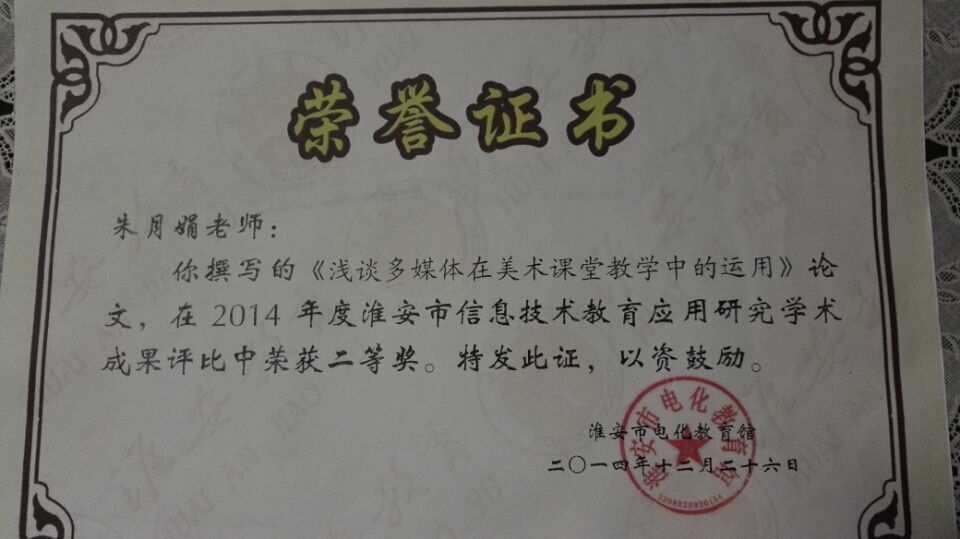 荣誉证书
朱月娟老师：
你撰写的《浅谈多媒体在美术课堂教学中的运用》论
文，在 2014 年度淮安市信息技术教育应用研究学术
成果评比中荣获二等奖。特发此证，以资鼓励。
淮安市电化教育馆
二〇一四年十二月二十六日
淮安市电化教育馆
3208020930154